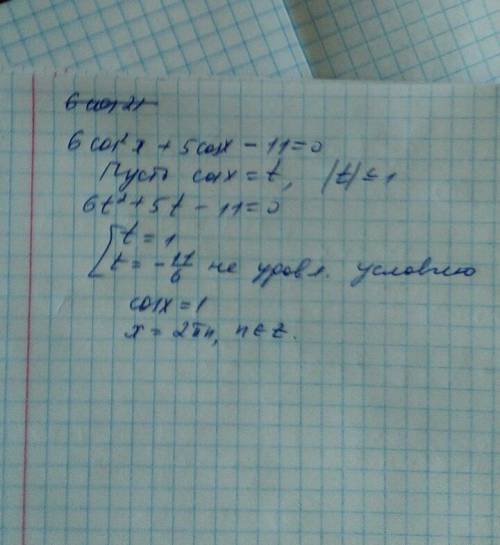 6 cos²x + 5cosx - 11 = 0
Пусть cosx = t, |t| ≤ 1
6t² + 5t - 11 = 0
[ t = 1
t = -11/6 не удовл. условию
cosx = 1
x = 2πn, n ∈ Z.